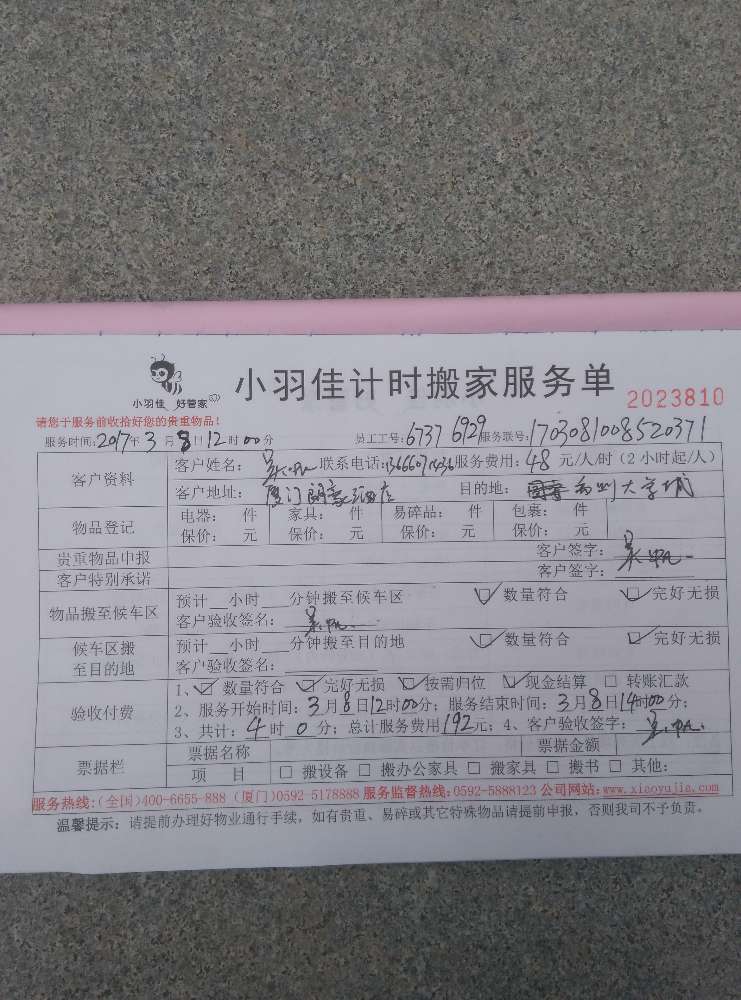 小羽佳 好管家
小羽佳计时搬家服务单
2023810
请您于服务前收拾好您的贵重物品!
服务时间:2017年3月8日12时00分 员工工号:6737 6929 服务联号:1703081008520371
客户资料
客户姓名: 联系电话: 服务费用:48元/人/时(2小时起/人)
客户地址:厦门朗豪酒店 目的地: 大学城
物品登记
电器: 件 家具: 件 易碎品: 件 包裹: 件
保价: 元 保价: 元 保价: 元 保价: 元
贵重物品申报 客户签字:
客户特别承诺 客户签字:
物品搬至候车区
预计__小时___分钟搬至候车区 ☑数量符合 ☑完好无损
客户验收签名:
候车区搬至目的地
预计__小时___分钟搬至目的地 ☑数量符合 ☑完好无损
客户验收签名:
验收付费
1、☑数量符合 ☑完好无损 ☑按需归位 ☑现金结算 □转账汇款
2、服务开始时间:3月8日12时00分;服务结束时间:3月8日14时00分;
3、共计:4时0分;总计服务费用192元;4、客户验收签字:
票据栏
票据名称 票据金额
项 目 □搬设备 □搬办公家具 □搬家具 □搬书 □其他:
服务热线:(全国)400-6655-888 (厦门)0592-5178888 服务监督热线:0592-5888123 公司网站:www.xiaoyujia.com
温馨提示:请提前办理好物业通行手续,如有贵重、易碎或其它特殊物品请提前申报,否则我司不予负责。